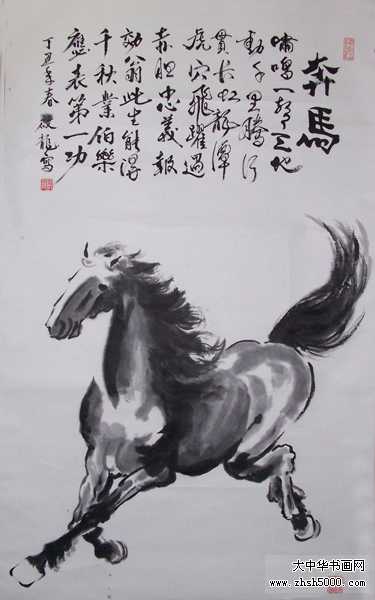 奔馬
嘯鳴一声天地
動千里騰行
貫长虹静潭
虎穴飛躍過
赤胆忠義報
効翁此生能得
千秋業伯樂
應表第一功
丁丑年春龍寫
大中华书画网
www.zhsh5000.com